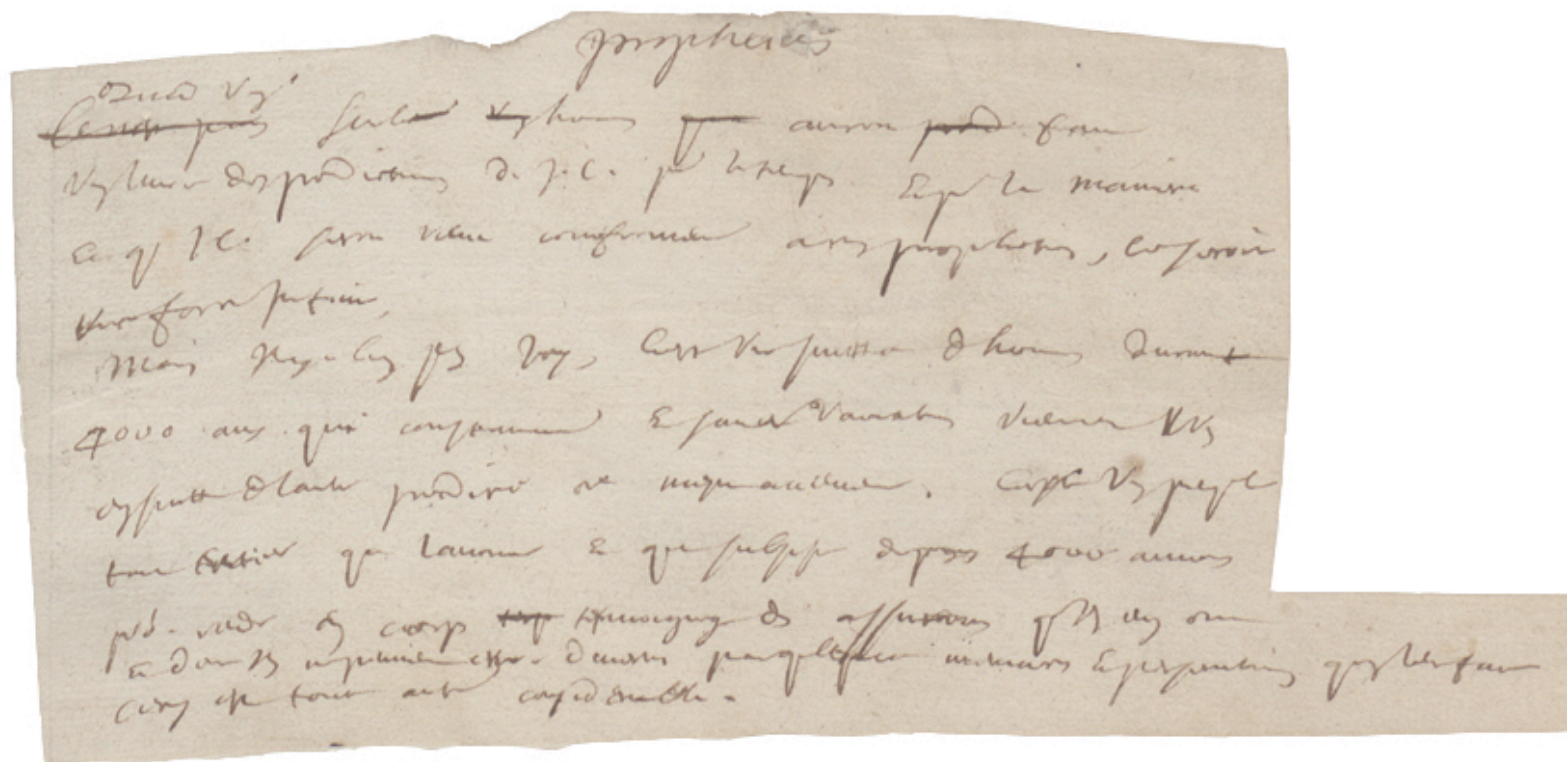 propheties
Quand Un
seul homme auroit fait
Un livre des predictions de J.C. pr le temps Et pr la maniere
Et q J.C. seroit venu conformement a ces propheties, ce seroit
Une force infinie,
Mais il y a bien plus icy, C'est Une suitte d'hommes durant
4000 ans qui constamment Et sans variations viennent l'Un
ensuitte de l'autre predire ce mesme avenement. C'est Un peuple
tout entier qui l'annonce Et qui subsiste depuis 4000 annees
pr rendre en corps tesmoignage des assurances qu'ils en ont
Et dont ils ne peuvent estre divertis par quelques menaces Et persecutions qu'on leur face
Cecy est tout autrement considerable.